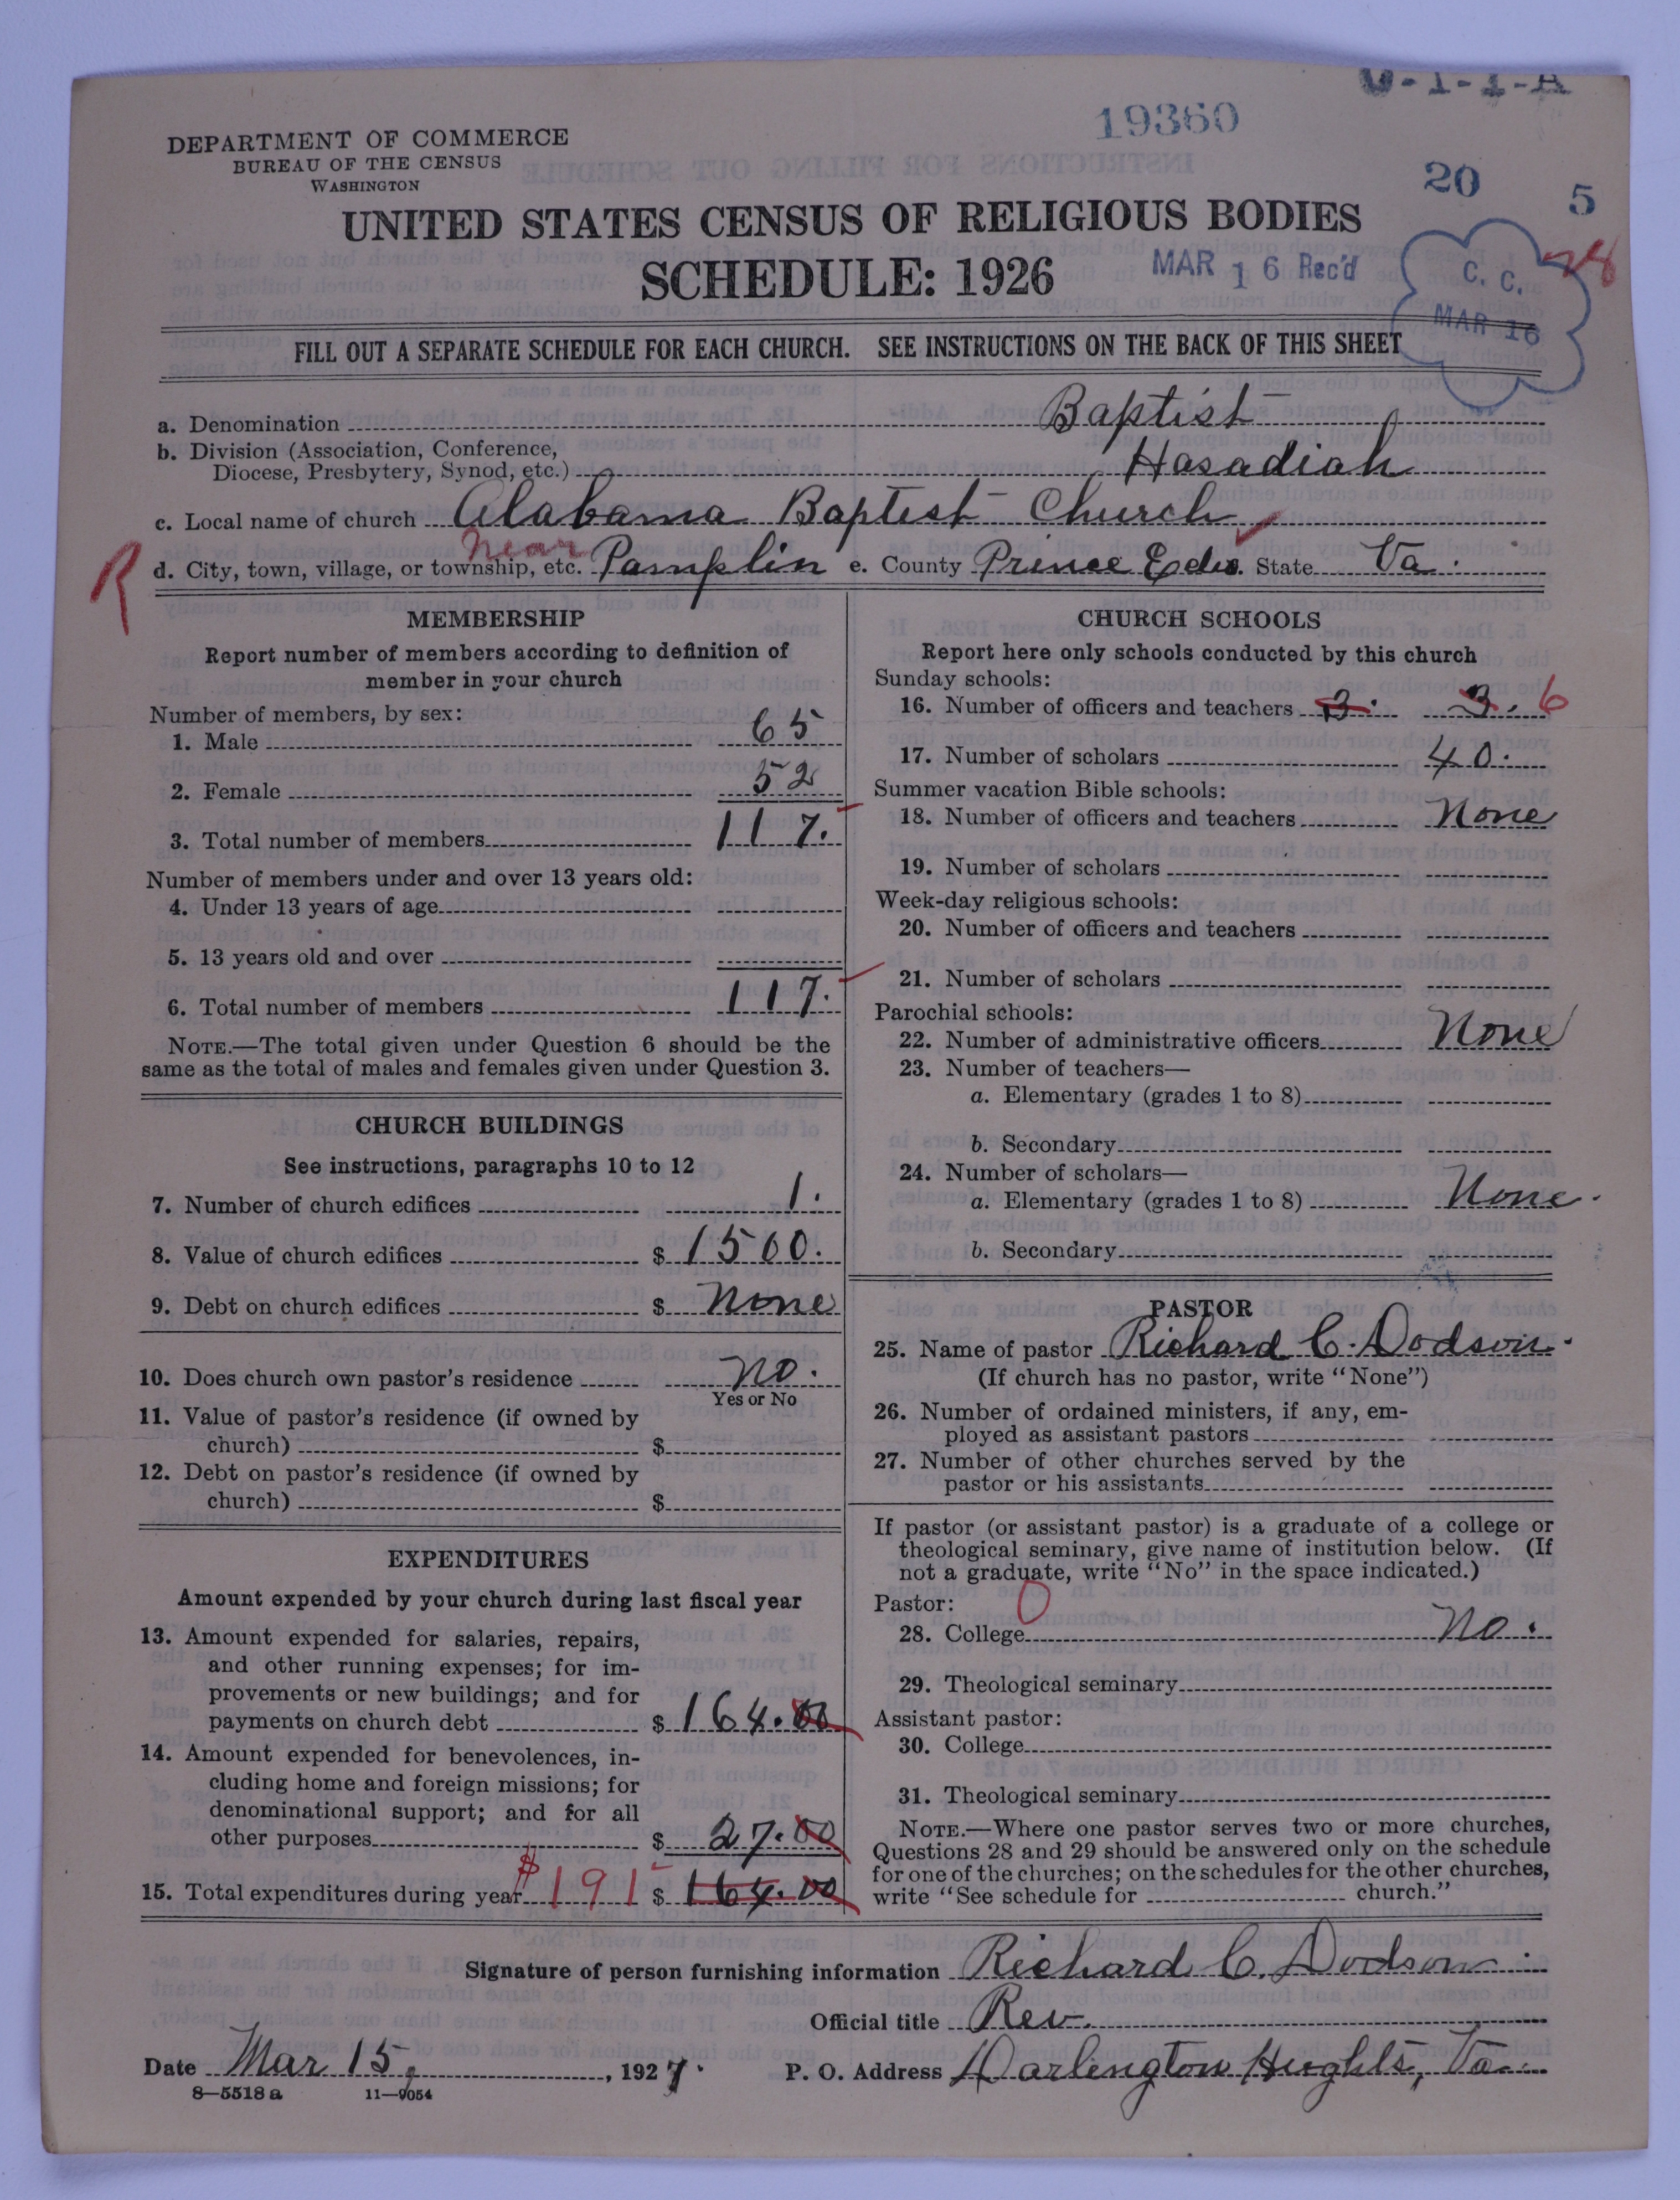 U-1-1-A
19360
DEPARTMENT OF COMMERCE
BUREAU OF THE CENSUS
WASHINGTON
20 5
UNITED STATES CENSUS OF RELIGIOUS BODIES
SCHEDULE: 1926
MAR 16 Rec'd
C. C.
MAR 16
FILL OUT A SEPARATE SCHEDULE FOR EACH CHURCH. SEE INSTRUCTIONS ON THE BACK OF THIS SHEET
a. Denomination Baptist
b. Division (Association, Conference,
Diocese, Presbytery, Synod, etc.) Hasadiah
c. Local name of church Alabama Baptist Church
near
R d. City, town, village, or township, etc. Pamplin e. County Prince Edw. State Va.
MEMBERSHIP
Report number of members according to definition of
member in your church
Number of members, by sex:
1. Male 65
2. Female 52
3. Total number of members 117.
Number of members under and over 13 years old:
4. Under 13 years of age
5. 13 years old and over
6. Total number of members 117.
NOTE.—The total given under Question 6 should be the
same as the total of males and females given under Question 3.
CHURCH BUILDINGS
See instructions, paragraphs 10 to 12
7. Number of church edifices 1.
8. Value of church edifices $ 1500.
9. Debt on church edifices $ None
10. Does church own pastor's residence No.
Yes or No
11. Value of pastor's residence (if owned by
church) $
12. Debt on pastor's residence (if owned by
church) $
EXPENDITURES
Amount expended by your church during last fiscal year
13. Amount expended for salaries, repairs,
and other running expenses; for im-
provements or new buildings; and for
payments on church debt $ 164.00
14. Amount expended for benevolences, in-
cluding home and foreign missions; for
denominational support; and for all
other purposes $ 27.00
15. Total expenditures during year $191 $ 164.00
CHURCH SCHOOLS
Report here only schools conducted by this church
Sunday schools:
16. Number of officers and teachers 3. 3. 6
17. Number of scholars 40.
Summer vacation Bible schools:
18. Number of officers and teachers None
19. Number of scholars
Week-day religious schools:
20. Number of officers and teachers
21. Number of scholars
Parochial schools:
22. Number of administrative officers None
23. Number of teachers—
a. Elementary (grades 1 to 8)
b. Secondary
24. Number of scholars—
a. Elementary (grades 1 to 8) None.
b. Secondary
PASTOR
25. Name of pastor Richard C. Dodson.
(If church has no pastor, write "None")
26. Number of ordained ministers, if any, em-
ployed as assistant pastors
27. Number of other churches served by the
pastor or his assistants
If pastor (or assistant pastor) is a graduate of a college or
theological seminary, give name of institution below. (If
not a graduate, write "No" in the space indicated.)
Pastor: 0
28. College No.
29. Theological seminary
Assistant pastor:
30. College
31. Theological seminary
NOTE.—Where one pastor serves two or more churches,
Questions 28 and 29 should be answered only on the schedule
for one of the churches; on the schedules for the other churches,
write "See schedule for church."
Signature of person furnishing information Richard C. Dodson.
Official title Rev.
Date Mar 15, 1927. P. O. Address Darlington Hughts, Va.
8—5518 a 11—9054